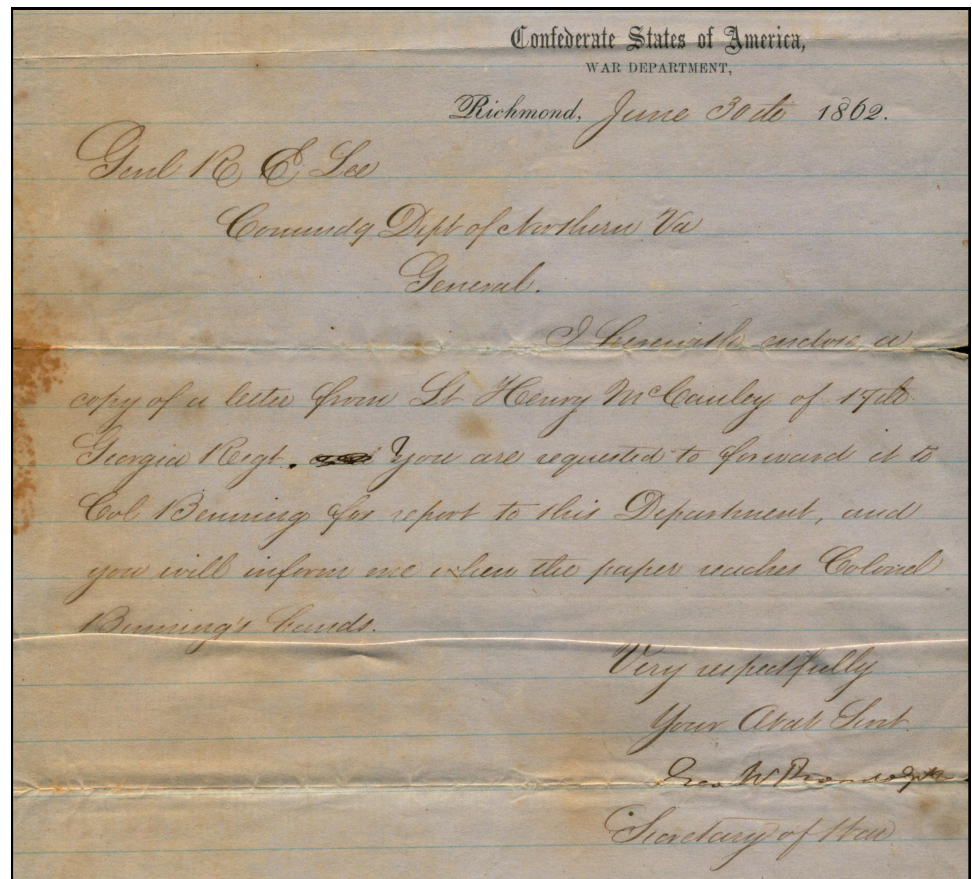 Confederate States of America,
WAR DEPARTMENT,
Richmond, June 30th 1862.
Genl R E Lee
Commdg Dept of Northern Va
General.
I herewith enclose a
copy of a letter from Lt Henry McCauley of 17th
Georgia Regt. You are requested to forward it to
Col Benning for report to this Department, and
you will inform me when the paper reaches Colonel
Benning's hands.
Very respectfully
Your Obdt Servt
Geo W Randolph
Secretary of War